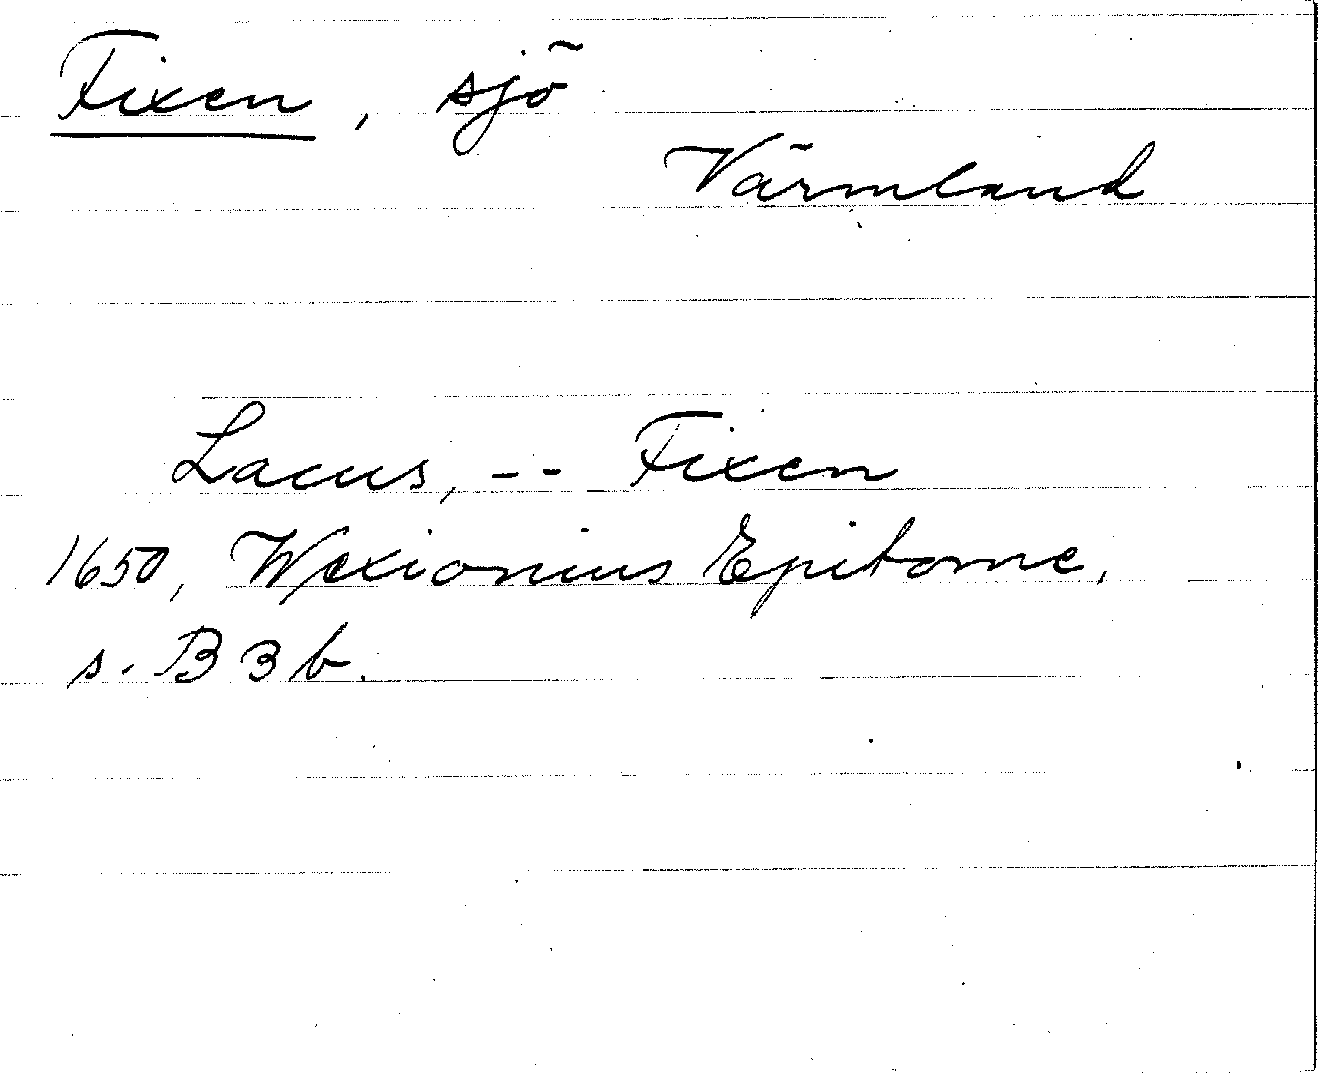 Fixen, sjö
Värmland
Lacus, -- Fixen
1650, Wexionius Epitome,
s. B 3 b.